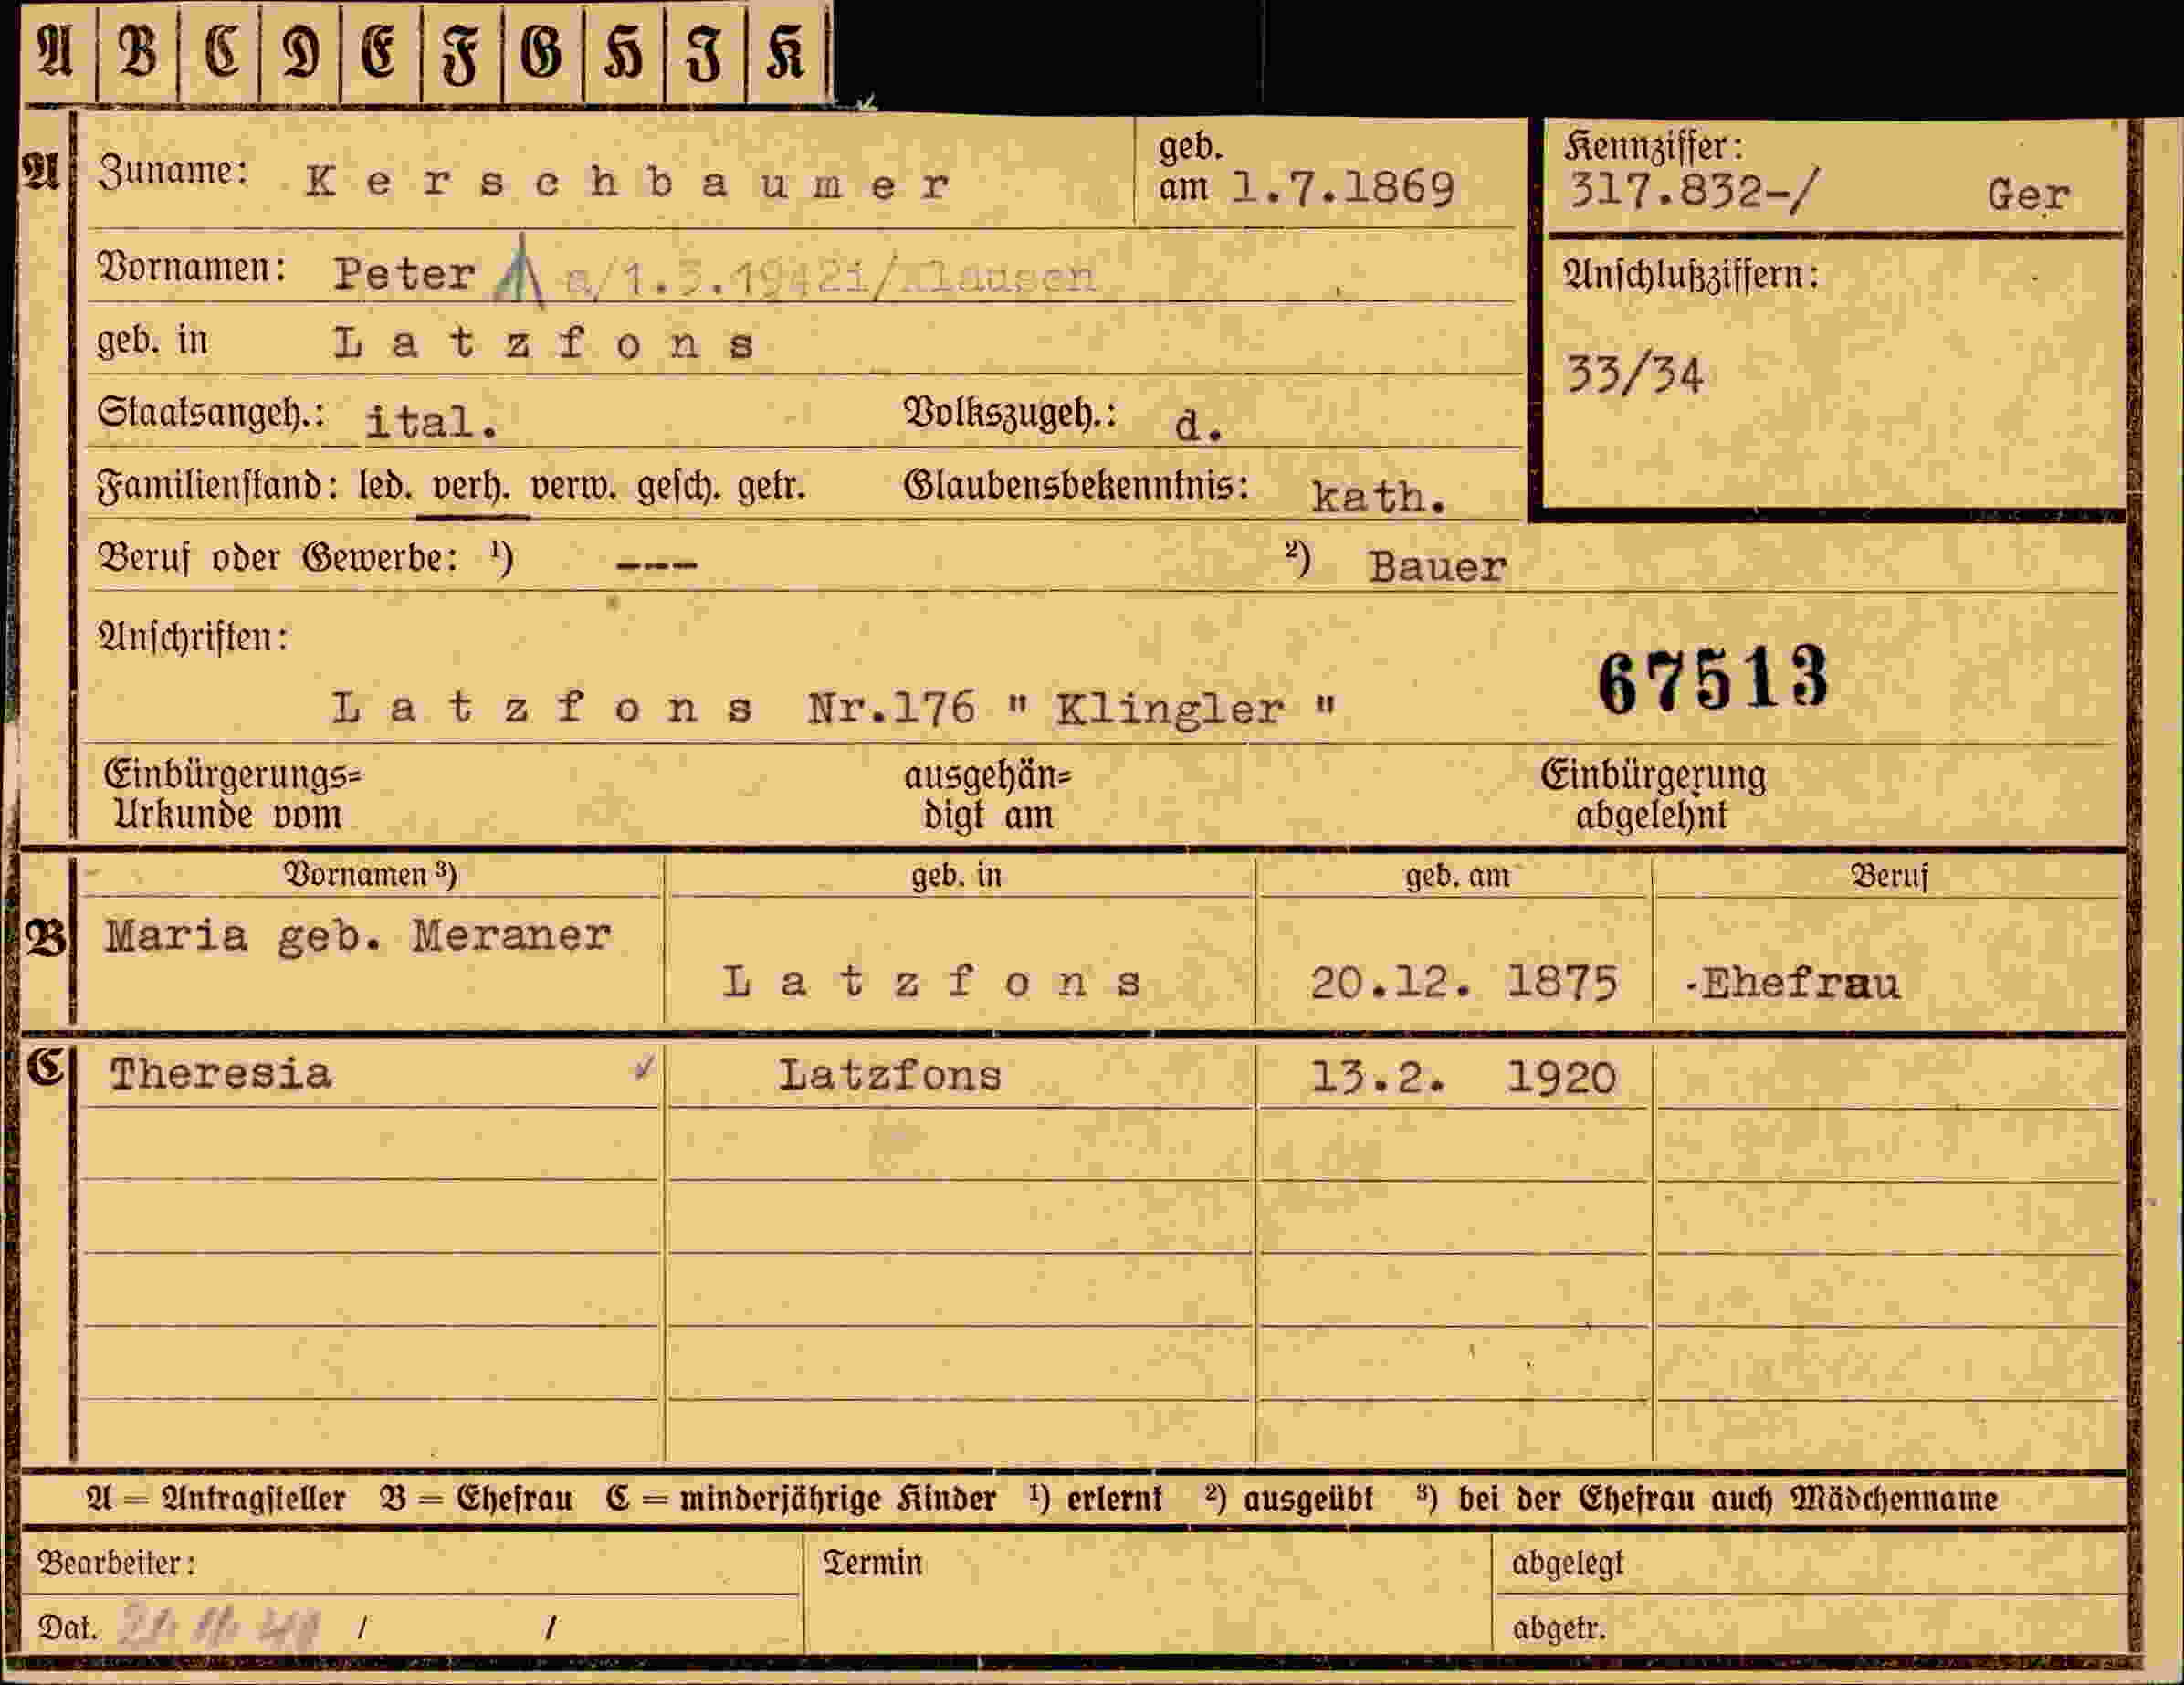 A B C D E F G H I K
A Zuname: Kerschbaumer geb. am 1.7.1869
Kennziffer: 317.832-/ Ger
Vornamen: Peter a/1.3.1942i/Klausen
Anschlußziffern:
geb. in Latzfons
33/34
Staatsangeh.: ital. Volkszugeh.: d.
Familienstand: led. verh. verw. gesch. getr. Glaubensbekenntnis: kath.
Beruf oder Gewerbe: ¹) --- ²) Bauer
Anschriften:
67513
Latzfons Nr.176 " Klingler "
Einbürgerungs= ausgehän= Einbürgerung
Urkunde vom digt am abgelehnt
Vornamen ³) geb. in geb. am Beruf
B Maria geb. Meraner
Latzfons 20.12. 1875 Ehefrau
C Theresia Latzfons 13.2. 1920
A = Antragsteller B = Ehefrau C = minderjährige Kinder ¹) erlernt ²) ausgeübt ³) bei der Ehefrau auch Mädchenname
Bearbeiter: Termin abgelegt
Dat. / / abgetr.